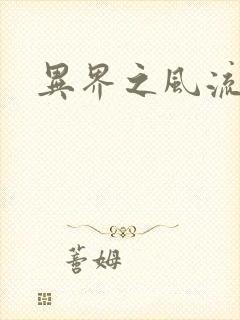 異界之風流
蕾姆